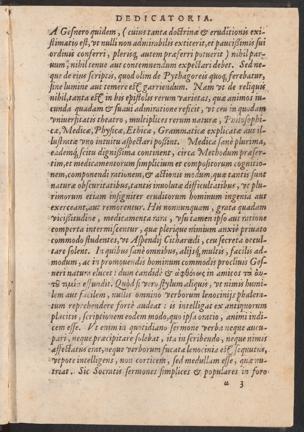 DEDICATORIA.
A Gesnero quidem, (cuius tanta doctrinæ & eruditionis exi-
stimatio est, vt nulli non admirabilis extiterit, et paucissimis sui
ordinis conferri, plerisq; autem præferri potuerit) nihil par-
uum, nihil tenue aut contemnendum expectari debet. Sed ne-
que de eius scriptis, quod olim de Pythagoreis quoq; ferebatur,
sine lumine aut temere est garriendum. Nam vt de reliquis
nihil, tanta est in his epistolis rerum varietas, quæ animos iu-
cunda quadam & suaui admiratione reficit, vt ceu in quodam
vniuersitatis theatro, multiplices rerum naturæ, Philosophi-
cæ, Medicæ, Physicæ, Ethicæ, Grammaticæ explicatæ aut il-
lustratæ vno intuitu aspectari possint. Medica sanè plurima,
eademq; scitu dignissima continent, circa Methodum præser-
tim, et medicamentorum simplicium et compositorum cognitio-
nem, componendi rationem, & actionis modum, quæ tantis sunt
naturæ obscuritatibus, tantis inuoluta difficultatibus, vt plu-
rimorum etiam insigniter eruditorum hominum ingenia aut
exerceant, aut remorentur. His nonnunquam, grata quadam
vicissitudine, medicamenta rara, vsu tamen ipso aut ratione
comperta intermiscentur, quæ plerique nimium anxiè priuato
commodo studentes, vt Aspendij Citharædi, ceu secreta occul-
tare solent. In quibus sanè omnibus, alijsq; multis, facilis ad-
modum, ac in promouendis hominum commodis procliuis Ges-
neri natura elucet: dum candidè & ἀφθόνως in amicos τὰ ἀυ-
effundit. Quòd si verò stylum aliquis, vt nimis humi-
lem aut facilem, nullis omnino verborum lenocinijs phalera-
tum reprehendere fortè audeat: is intelligat ex antiquorum
placitis, scriptionem eodem modo, quo ipsa oratio, animi indi-
cem esse. Vt enim in quotidiano sermone verba neque aucu-
pari, neque præcipitare solebat, ita in scribendo, neque nimis
affectatus erat, neque verborum fucata lenocinia est sequutus,
vtpote intelligens, non corticem, sed medullam esse, quæ nu-
triat. Sic Socratis sermones simplices & populares in foro
a 3